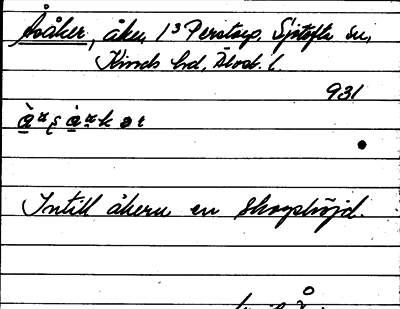 Åsåker, åker, 1³ Perstorp, Sjötofta sn,
Kinds hd, Älvsb. l.
931
Intill åkern en skogshöjd.